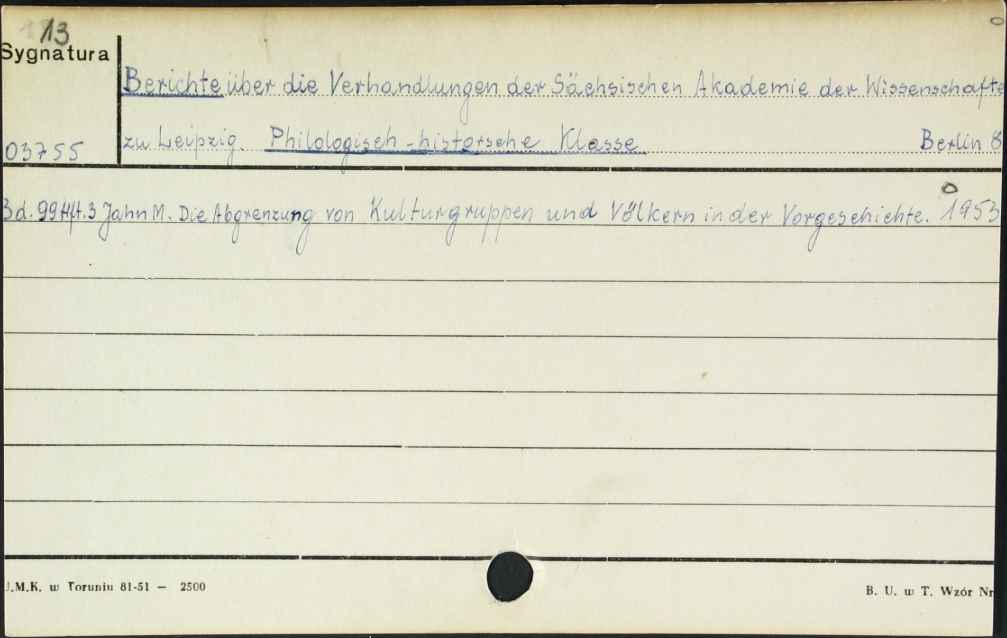 1/13
Sygnatura
Berichte über die Verhandlungen der Sächsischen Akademie der Wissenschafte
03755 zu Leipzig. Philologisch-historsche Klasse Berlin 8
Bd. 99 Hft. 3 Jahn M. Die Abgrenzung von Kulturgruppen und Völkern in der Vorgeschichte. 1953
.M.K. w Toruniu 81-51 — 2500 B. U. w T. Wzór Nr